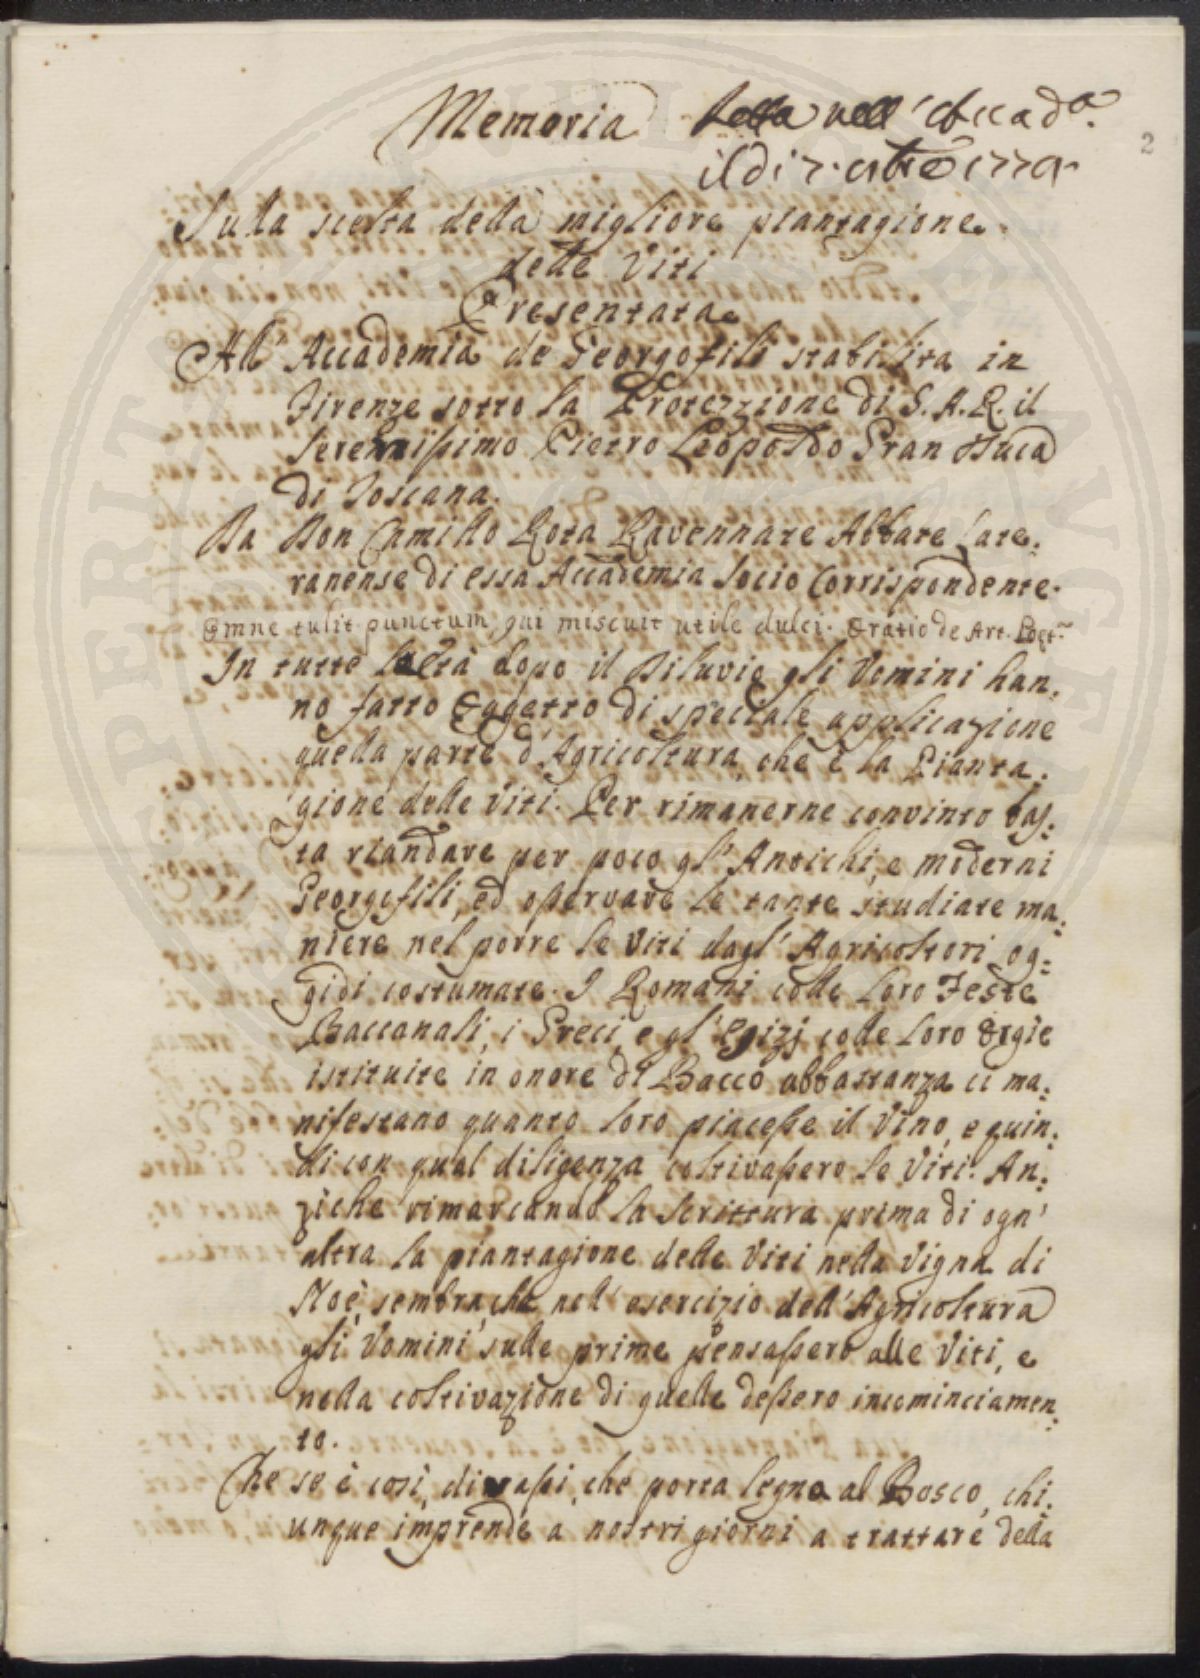 Memoria letta nell'Accad.a
il di 7. 1779.
2
Sulla scelta della migliore piantagione
delle Viti
Presentata
All'Accademia de Georgofili stabilita in
Firenze sotto la Protezzione di S. A. R. il
Serenissimo Pietro Leopoldo Gran Duca
di Toscana.
Da Don Camillo Rota Ravennate Abbate Late:
ranense di essa Accademia Socio Corrispondente.
Omne tulit punctum, qui miscuit utile dulci. Oratio de Art. Poet.
In tutte l'età dopo il Diluvio gli Uomini han:
no fatto Oggetto di speciale applicazione
quella parte d'Agricoltura, che è la Pianta:
gione delle Viti. Per rimanerne convinto bas:
ta riandare per poco gl'Antichi, e moderni
Georgofili, ed osservare le tante studiate ma:
niere nel porre le Viti dagl'Agricoltori og:
gidi costumate. I Romani colle Loro Feste
Baccanali, i Greci, e gl'Egizj colle Loro Orgie
istituite in onore di Bacco abbastanza ci ma:
nifestano quanto loro piacesse il Vino, e quin:
di con qual diligenza coltivassero le Viti. An:
ziche rimarcando la Scrittura prima di ogn'
altra la piantagione delle Viti nella Vigna di
Noè, sembra, che nell'esercizio dell'Agricoltura
gli Uomini sulle prime pensassero alle Viti, e
nella coltivazione di quelle dessero incominciamen:
to.
Che se è così, dirassi, che porta legna al Bosco, chi:
unque imprende a nostri giorni a trattare della